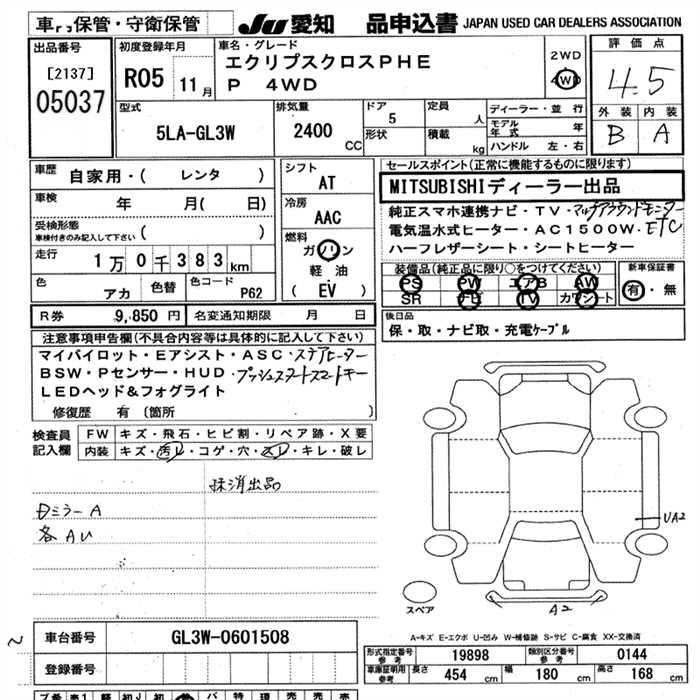 車 保管・守衛保管
JU 愛知 品申込書 JAPAN USED CAR DEALERS ASSOCIATION
出品番号
[2137]
05037
初度登録年月
R05 11月
車名・グレード
エクリプスクロスPHE
P 4WD
2WD
4WD
評価点
4.5
外装 内装
B A
型式
5LA-GL3W
排気量
2400 CC
ドア
5
形状
定員 人
積載 kg
ディーラー・並行
モデル年式 年
ハンドル 左・右
車歴
自家用・( レンタ )
車検
年 月( 日)
受検形態
車検付きのみ記入して下さい ( )
走行
1万0千383km
色
アカ
色替
色コード
P62
シフト
AT
冷房
AAC
燃料
ガソリン
軽油
( EV )
セールスポイント(正常に機能するものに限ります)
MITSUBISHIディーラー出品
純正スマホ連携ナビ・TV・マルチアラウンドモニター
電気温水式ヒーター・AC1500W・ETC
ハーフレザーシート・シートヒーター
装備品(純正品に限り○をつけてください)
PS PW エアB AW
SR ナビ TV カワシート
新車保証書
有・無
R券 9,850円
名変通知期限 月 日
後日品
保・取・ナビ取・充電ケーブル
注意事項申告欄(不具合内容等は具体的に記入して下さい)
マイパイロット・Eアシスト・ASC・ステアヒーター
BSW・Pセンサー・HUD・プッシュスタートスマートキー
LEDヘッド&フォグライト
修復歴 有 〔箇所 〕
検査員記入欄
FW キズ・飛石・ヒビ割・リペア跡・X要
内装 キズ・汚レ・コゲ・穴・スレ・キレ・破レ
抹消出品
Dミラー A
各 AU
UA2
A2
スペア
A-キズ E-エクボ U-凹み W-補修跡 S-サビ C-腐食 XX-交換済
車台番号
GL3W-0601508
登録番号
形式指定番号 参考
19898
類別区分番号 参考
0144
車庫証明用 参考
長さ 454 cm
幅 180 cm
高さ 168 cm